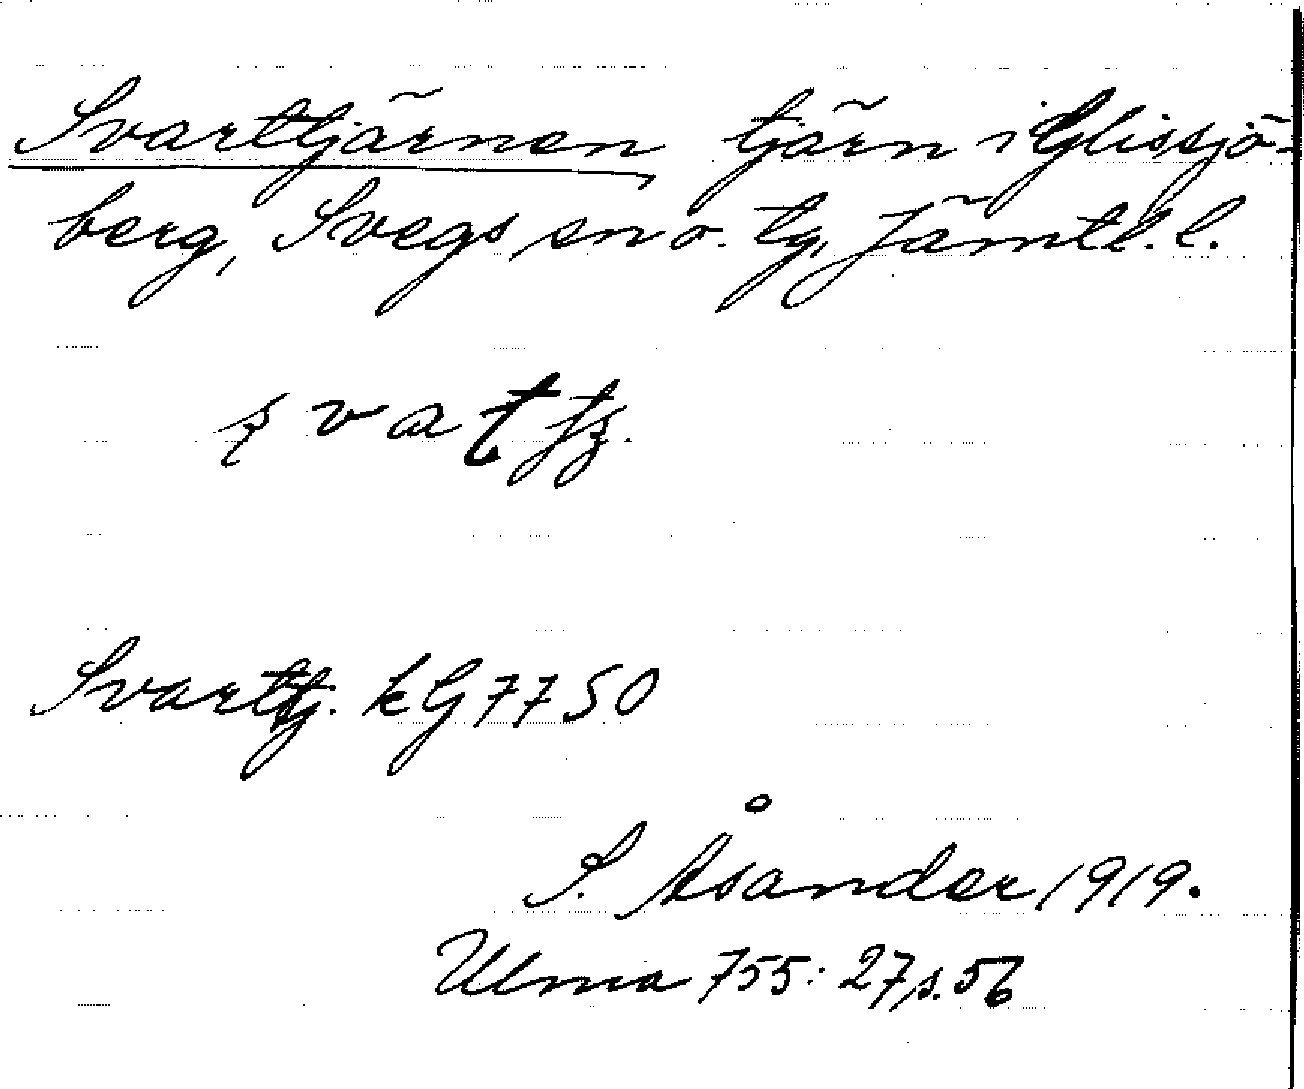 Svarttjärnen tjärn i Glissjö-
berg, Svegs sn o. tg, Jämtl. l.
Svarttj. kG 7750
S. Åsander 1919.
Ulma 755: 27, s. 56